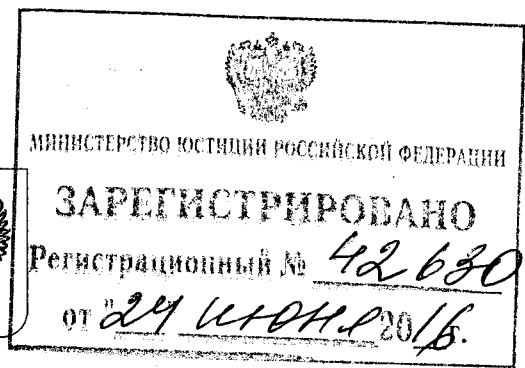 МИНИСТЕРСТВО ЮСТИЦИИ РОССИЙСКОЙ ФЕДЕРАЦИИ
ЗАРЕГИСТРИРОВАНО
Регистрационный № 42630
от "24 июня 2016г.